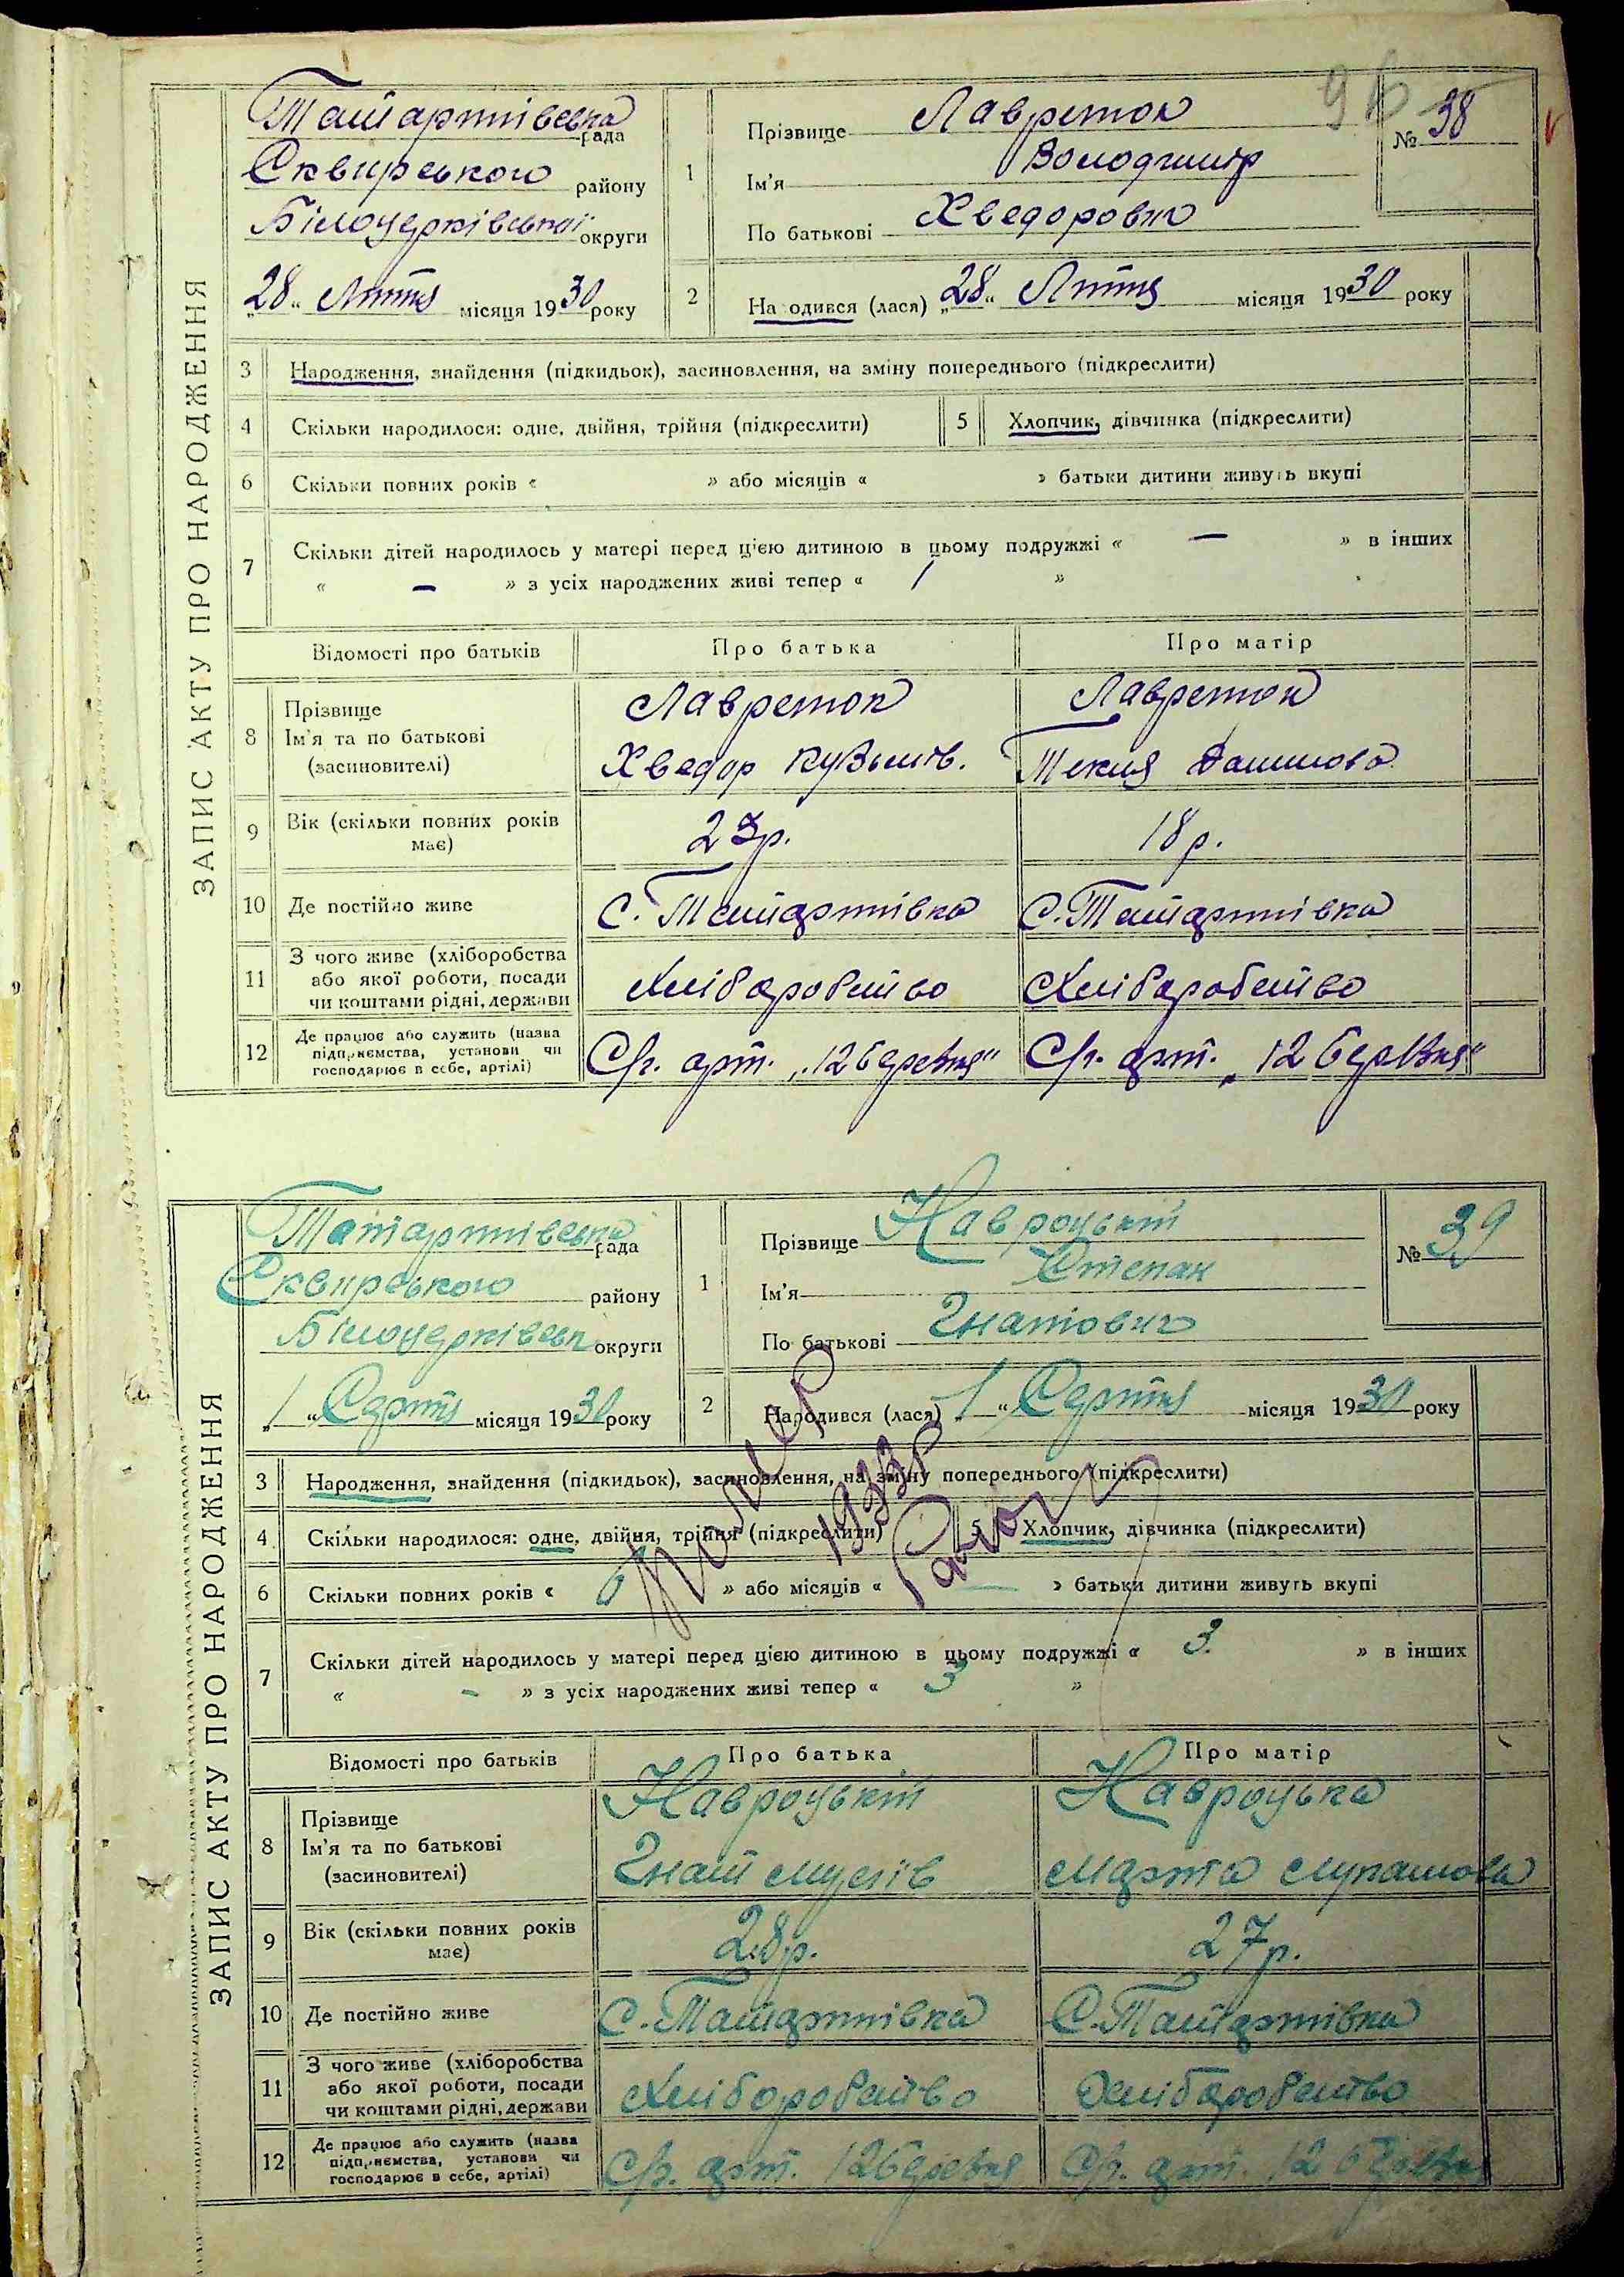 ЗАПИС АКТУ ПРО НАРОДЖЕННЯ
96
Татартпівська рада
Сквирського району
Білоцерківської округи
„28“ Лютня місяця 1930 року
1 Прізвище Лавретюк
Ім'я Володимир
По батькові Хведорович
№ 38
2 Народився (лася) „28“ Лютня місяця 1930 року
3 Народження, знайдення (підкидьок), засиновлення, на зміну попереднього (підкреслити)
4 Скільки народилося: одне, двійня, трійня (підкреслити) 5 Хлопчик, дівчинка (підкреслити)
6 Скільки повних років « » або місяців « » батьки дитини живуть вкупі
7 Скільки дітей народилось у матері перед цією дитиною в цьому подружжі « — » в інших
« — » з усіх народжених живі тепер « 1 »
Відомості про батьків Про батька Про матір
8 Прізвище Ім'я та по батькові (засиновителі)
Лавретюк Лавретюк
Хведор Кузьмів. Текля
9 Вік (скільки повних років має) 23р. 18 р.
10 Де постійно живе
11 З чого живе (хліборобства або якої роботи, посади чи коштами рідні, держави Хліборобство Хліборобство
12 Де працює або служить (назва підприємства, установи чи господарює в себе, артілі) С/г. арт. „12 березня“ С/г. арт. „12 березня“
ЗАПИС АКТУ ПРО НАРОДЖЕННЯ
рада
Сквирського району
Білоцерківськ округи
„1“ Серпня місяця 1930 року
1 Прізвище Навроцький
Ім'я Степан
По батькові Гнатович
№ 39
2 Народився (лася) „1“ Серпня місяця 1930 року
Помер
1933 р
3 Народження, знайдення (підкидьок), засиновлення, на зміну попереднього (підкреслити)
4 Скільки народилося: одне, двійня, трійня (підкреслити) 5 Хлопчик, дівчинка (підкреслити)
6 Скільки повних років « 6 » або місяців « — » батьки дитини живуть вкупі
7 Скільки дітей народилось у матері перед цією дитиною в цьому подружжі « 3. » в інших
« - » з усіх народжених живі тепер « 3 »
Відомості про батьків Про батька Про матір
8 Прізвище Ім'я та по батькові (засиновителі)
Навроцький Навроцька
Гнат Мусіїв Марта
9 Вік (скільки повних років має) 28р. 27р.
10 Де постійно живе
11 З чого живе (хліборобства або якої роботи, посади чи коштами рідні, держави Хліборобство Хліборобство
12 Де працює або служить (назва підприємства, установи чи господарює в себе, артілі) С/г. арт. 12 березня С/г. арт. 12 березня